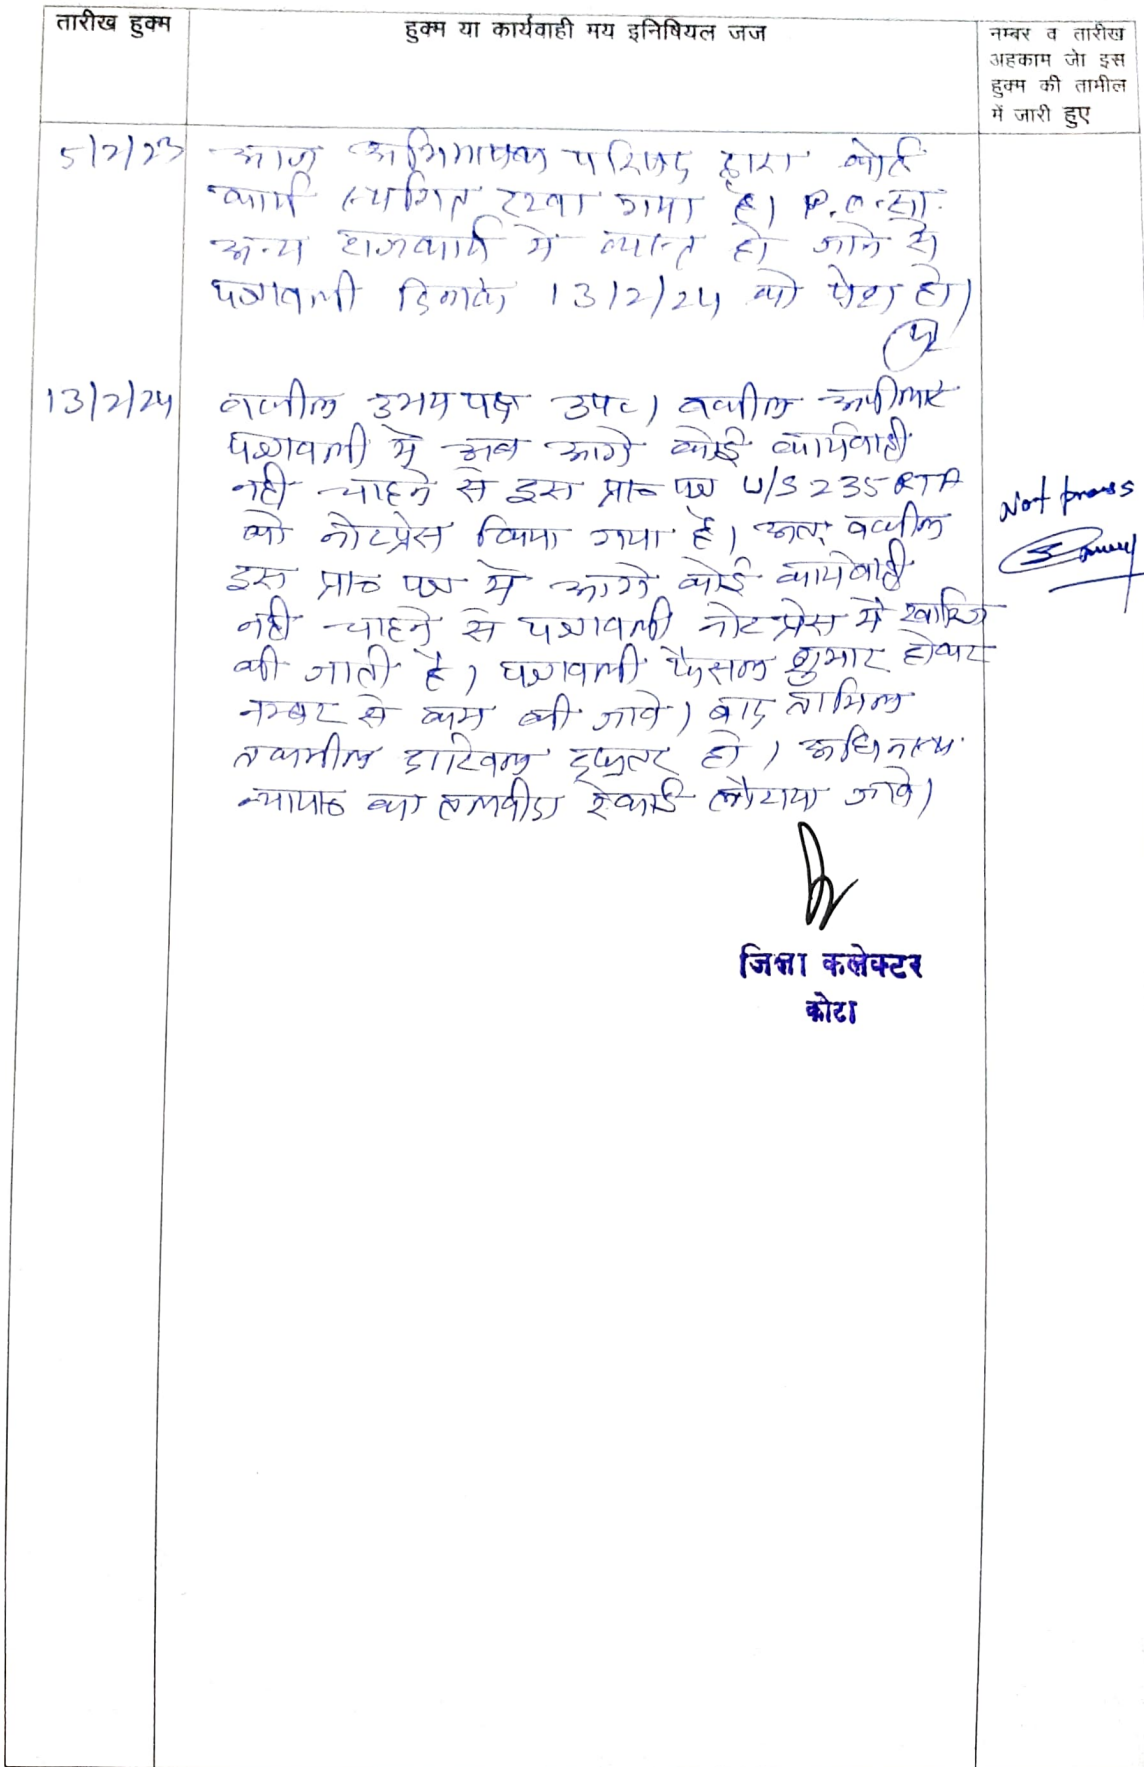 तारीख हुक्म
हुक्म या कार्यवाही मय इनिषियल जज
नम्बर व तारीख
अहकाम जो इस
हुक्म की तामील
में जारी हुए
5/2/23
आज अभिभाषक परिषद द्वारा कोर्ट
कार्य स्थगित रखा गया है। P.O. सा.
अन्य राजकार्य मे व्यस्त हो जाने से
पत्रावली दिनांक 13/2/24 को पेश हो।
13/2/24
वकील उभयपक्ष उप०। वकील अपीलांट
पत्रावली मे अब आगे कोई कार्यवाही
नही चाहने से इस प्रा० पत्र U/S 235 RTA
को नोटप्रेस किया गया है। अतः वकील
इस प्रा० पत्र मे आगे कोई कार्यवाही
नही चाहने से पत्रावली नोटप्रेस मे खारिज
की जाती है। पत्रावली फैसल शुमार होकर
नम्बर से कम की जावे। बाद तामिल
तकमील दाखिल दफ्तर हो। अधिनस्थ
न्याया० का तलबीदा रेकार्ड लौटाया जावे।
Not press
जिला कलेक्टर
कोटा